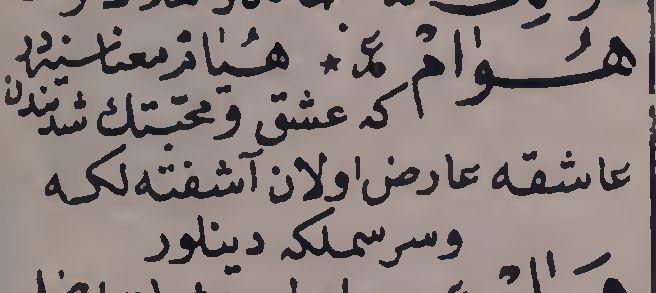 هُوَامْ ع * هُيَامْ معناسنه در
كه عشق و محبتك شدتندن
عاشقه عارض اولان آشفته لكه
وسرسملكه دينلور